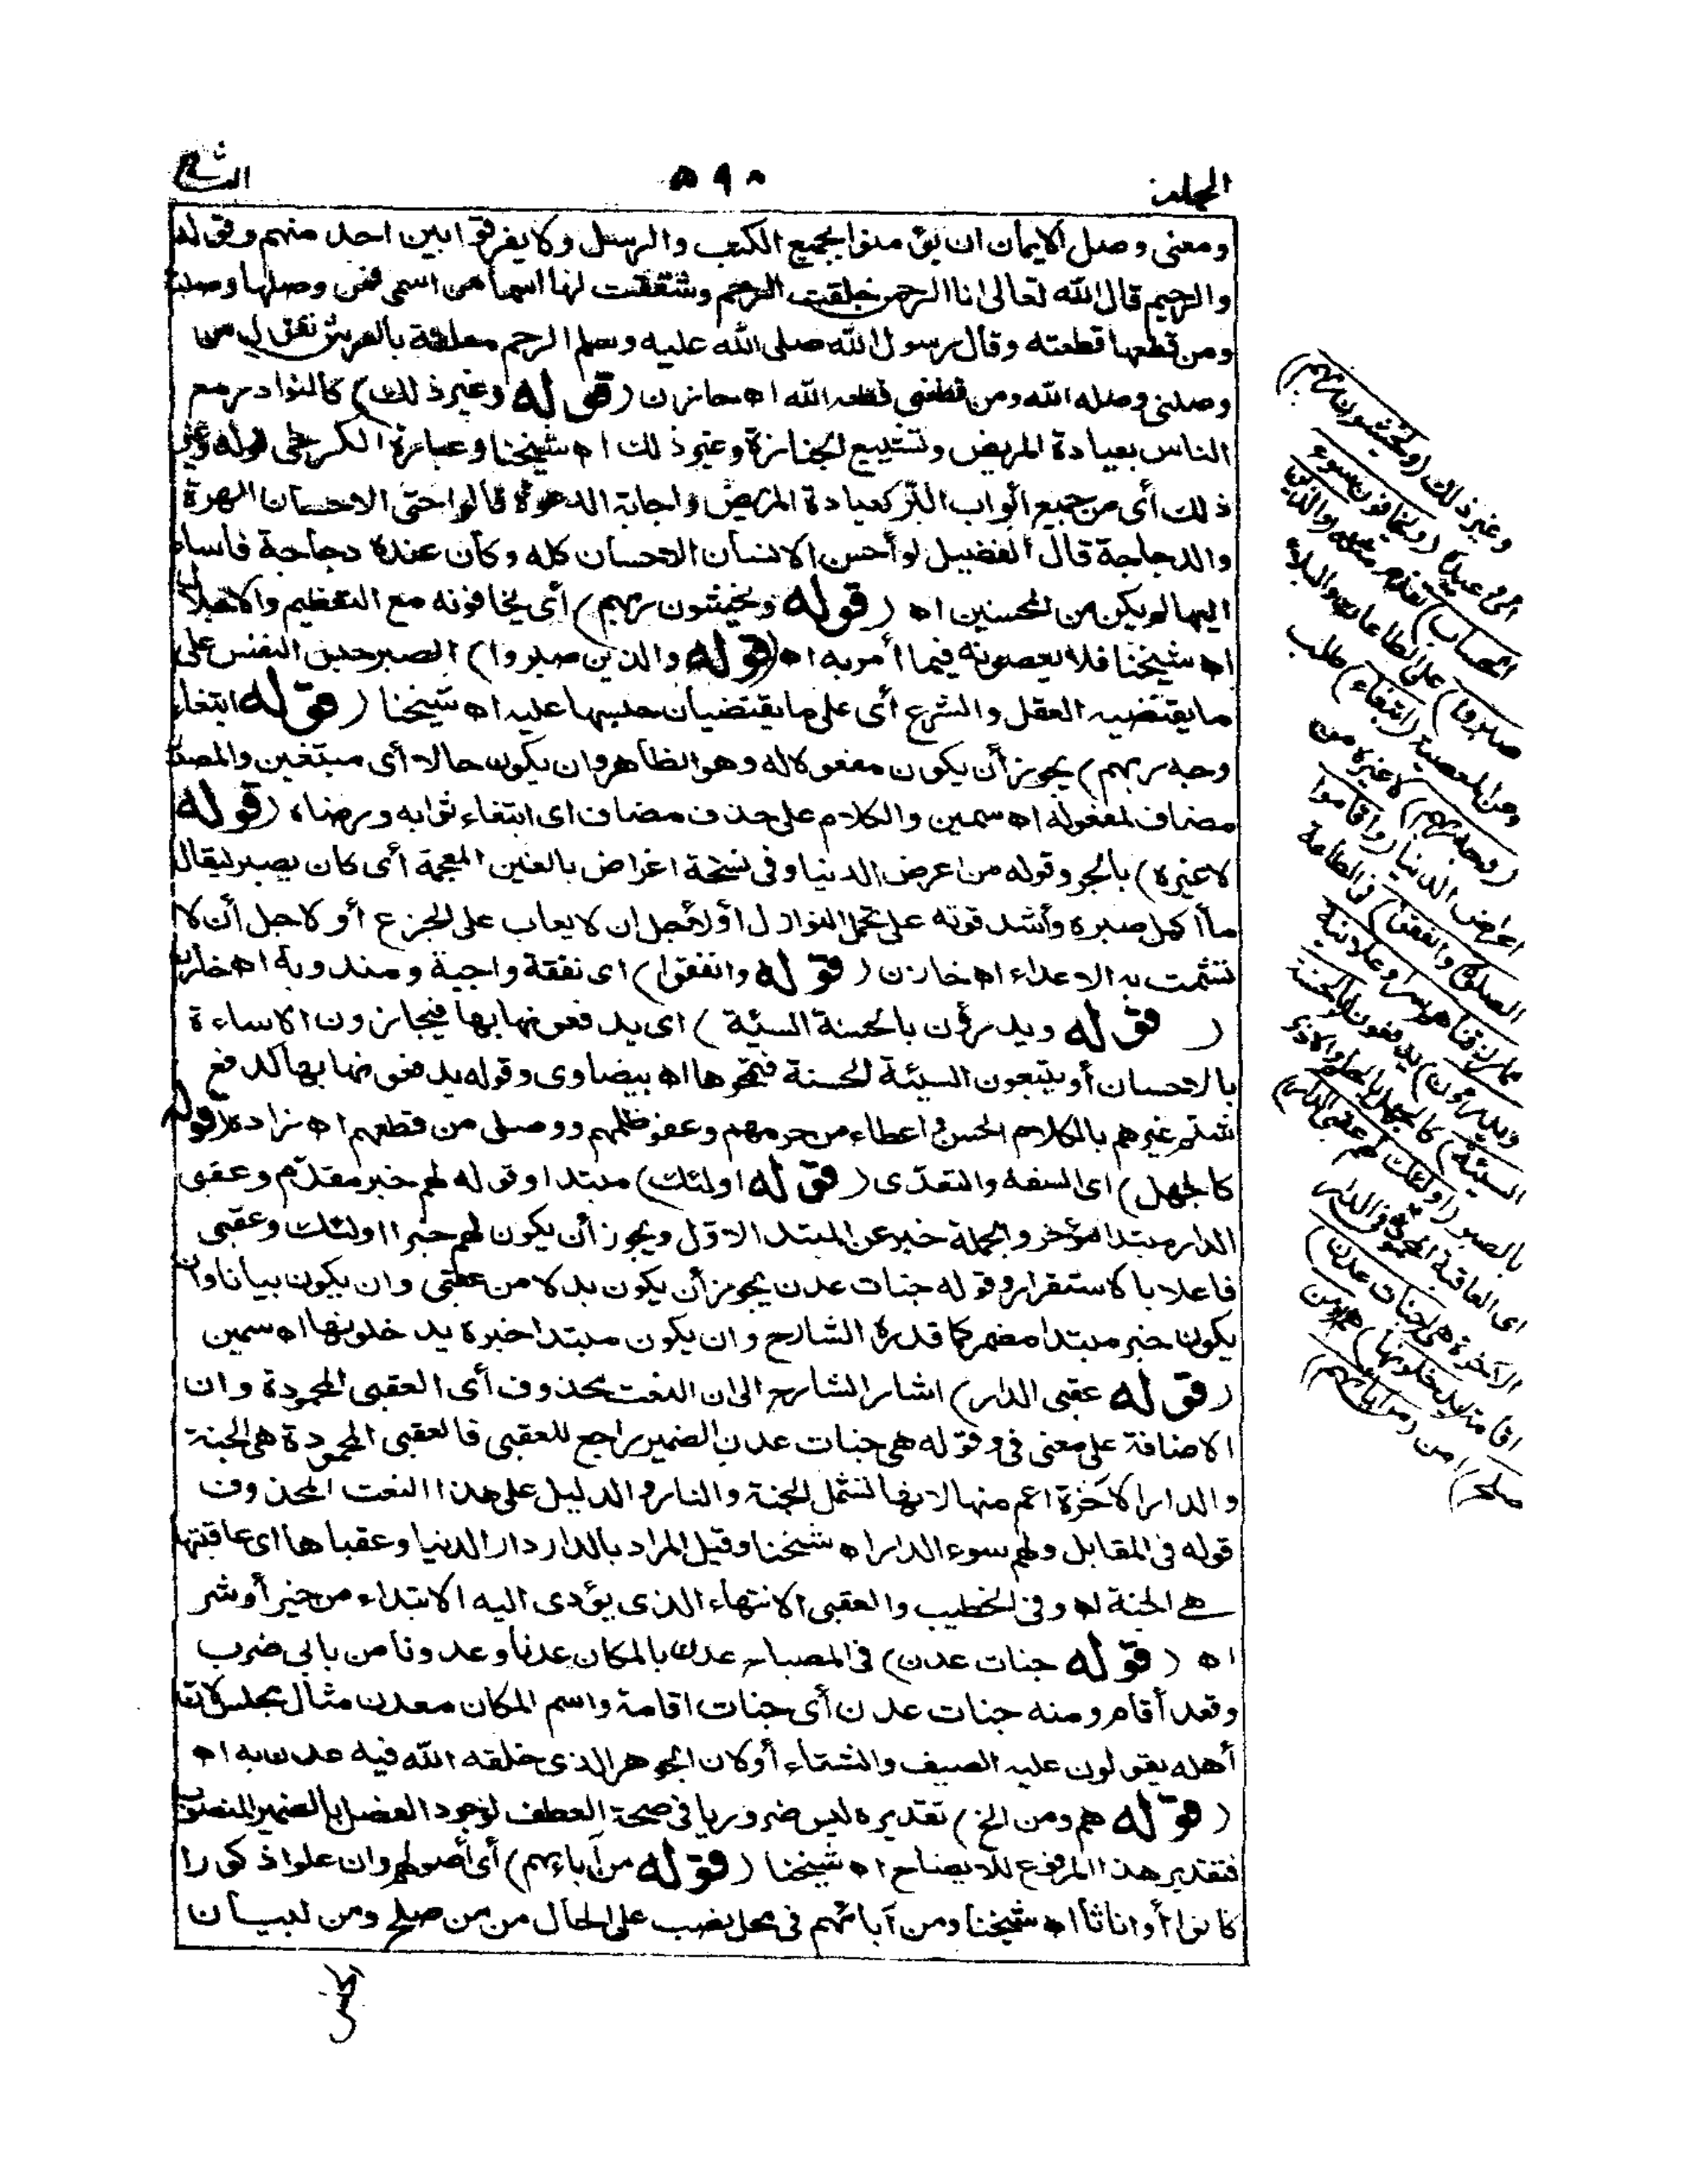 المجلد
٥٩٠
الثانى
ومعنى وصل الايمان ان يؤمنوا بجميع الكتب والرسل ولا يفرقوا بين احد منهم وقوله
والرحيم قال الله تعالى انا الرحمن خلقت الرحم وشققت لها اسما من اسمى فمن وصلها وصلته
ومن قطعها قطعته وقال رسول الله صلى الله عليه وسلم الرحم معلقة بالعرش تقول من
وصلنى وصله الله ومن قطعنى قطعه الله اه خازن (قوله وغير ذلك) كالتوادد مع
الناس بعيادة المريض وتشييع الجنازة وغير ذلك اه شيخنا وعبارة الكرخى قوله وغير
ذلك أى من جميع أبواب البر كعيادة المريض واجابة الدعوة قالوا حتى الاحسان الهرة
والدجاجة قال الفضيل لو أحسن الانسان الاحسان كله وكان عنده دجاجة فاساء
اليها لم يكن من المحسنين اه (قوله ويخشون ربهم) أى يخافونه مع التعظيم والاجلال
اه شيخنا فلا يعصونه فيما أمر به اه (قوله والذين صبروا) الصبر حبس النفس على
ما يقتضيه العقل والشرع أى على ما يقتضيان حبسها عليه اه شيخنا (قوله ابتغاء
وجه ربهم) يجوز أن يكون مفعولا له وهو الظاهر وان يكون حالا أى مبتغين والمصدر
مضاف لمفعوله اه سمين والكلام على حذف مضاف اى ابتغاء ثوابه ورضاه (قوله
لا غيره) بالجر وقوله من اعرض الدنيا وفى نسخة اغراض بالغين المعجمة أى كان يصبر ليقال
ما أكمل صبره وأشد قوته على تحمل النوازل أو لأجل ان لا يعاب على الجزع أو لاجل أن لا
تشمت به الاعداء اه خازن (قوله وانفقوا) اى نفقة واجبة ومندوبة اه خازن
(قوله ويدرؤن بالحسنة السيئة) اى يدفعونها بها فيجازون الاساءة
بالاحسان أو يتبعون السيئة الحسنة فتمحوها اه بيضاوى وقوله يدفعونها بها كدفع
شتم غيرهم بالكلام الحسن واعطاء من حرمهم وعفو ظلمهم ووصل من قطعهم اه زاده (قوله
كالجهل) اى السفه والتعدّى (قوله اولئك) مبتدا وقوله لهم خبر مقدّم وعقبى
الدار مبتدا مؤخر والجملة خبر عن المبتدا الاوّل ويجوز أن يكون لهم خبر اولئك وعقبى
فاعلا بالاستقرار وقوله جنات عدن يجوز أن يكون بدلا من عقبى وان يكون بيانا وان
يكون خبر مبتدا مضمر كما قدره الشارح وان يكون مبتدا خبره يدخلونها اه سمين
(قوله عقبى الدار) اشار الشارح الى ان النعت محذوف أى العقبى المحمودة وان
الاضافة على معنى فى وقوله هى جنات عدن الضمير راجع للعقبى فالعقبى المحمودة هى الجنة
والدار الآخرة اعم منها لانها تشمل الجنة والنار والدليل على هذا النعت المحذوف
قوله فى المقابل ولهم سوء الدار اه شيخنا وقيل المراد بالدار دار الدنيا وعقباها اى عاقبتها
هى الجنة اه وفى الخطيب والعقبى الانتهاء الذى يؤدى اليه الابتداء من خير أو شر
اه (قوله جنات عدن) فى المصباح عدن بالمكان عدنا وعدونا من بابى ضرب
وقعد أقام ومنه جنات عدن أى جنات اقامة واسم المكان معدن مثال مجلس لان
أهله يقولون عليه الصيف والشتاء أو لان الجوهر الذى خلقه الله فيه عدن به اه
(قوله هم ومن الخ) تقديره ليس ضروريا فى صحة العطف لوجود الفصل بالضمير المنصوب
فتقدير هذا المرفوع للايضاح اه شيخنا (قوله من آبائهم) أى أصولهم وان علوا ذكورا
كانوا أو اناثا اه شيخنا ومن آبائهم فى محل نصب على الحال من من صلح ومن لبيان
وغير ذلك (ويخشون ربهم)
اى وعيده (ويخافون سوء
الحساب) تقدم مثله (والذين
صبروا) على الطاعات والبلاء
وعن المعصية (ابتغاء) طلب
(وجه ربهم) لا غيره من
اعراض الدنيا (واقاموا
الصلوة وانفقوا) فى الطاعة
مما رزقناهم سرا وعلانية
ويدرؤن) يدفعون (بالحسنة
السيئة) كالجهل بالحلم والاذى
بالصبر (اولئك لهم عقبى الدار)
اى العاقبة المحمودة فى الدار
الآخرة هى (جنات عدن)
اقامة (يدخلونها) هم (ومن
صلح) امن (من آبائهم)